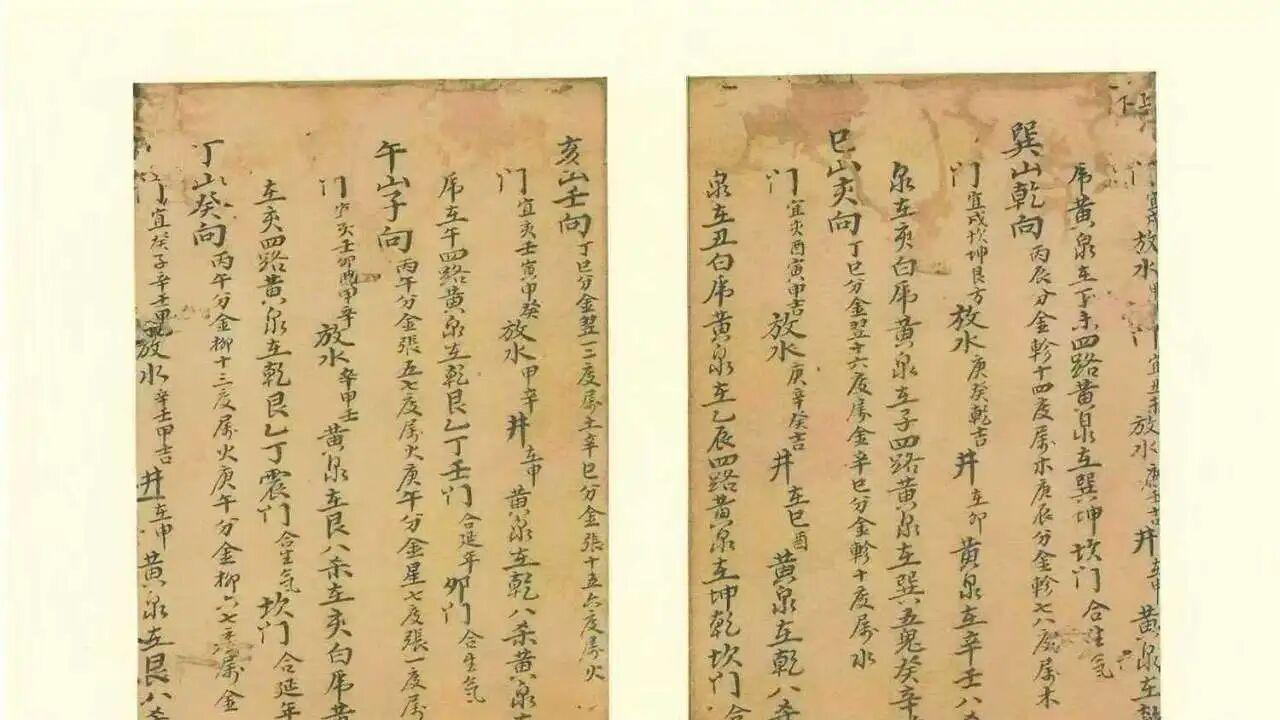 放水 门宜丑未 放水 井在申 黄泉在乾
虎黄泉在丁未四路黄泉在巽坤坎门合生气
巽山乾向丙辰分金轸十四度属木庚辰分金轸七八度属木
门宜戌坎坤艮方放水庚癸乾吉井在卯黄泉在辛壬八
泉在亥白虎黄泉在子四路黄泉在巽五鬼癸辛
巳山亥向丁巳分金翌十六度属金辛巳分金轸十度属水
门宜亥酉寅甲吉放水庚辛癸吉井在巳酉黄泉在乾八杀
泉在丑白虎黄泉在乙辰四路黄泉在坤乾坎门合
亥山壬向丁巳分金翌一二度属土辛巳分金張十五六度属火
门宜亥壬寅甲癸放水甲辛井在申黄泉在乾八杀黄泉在
虎在午四路黄泉在乾艮乙丁壬门合延年卯门合生气
午山子向丙午分金張五七度属火庚午分金星七度張一度属
门宜亥壬卯酉甲辛放水辛甲壬黄泉在艮八杀在亥白虎黄
在亥四路黄泉在乾艮乙丁震门合生气坎门合延年
丁山癸向丙午分金柳十三度属火庚午分金柳六七八属金
门宜癸子辛壬放水辛壬甲吉井在申黄泉在艮八杀